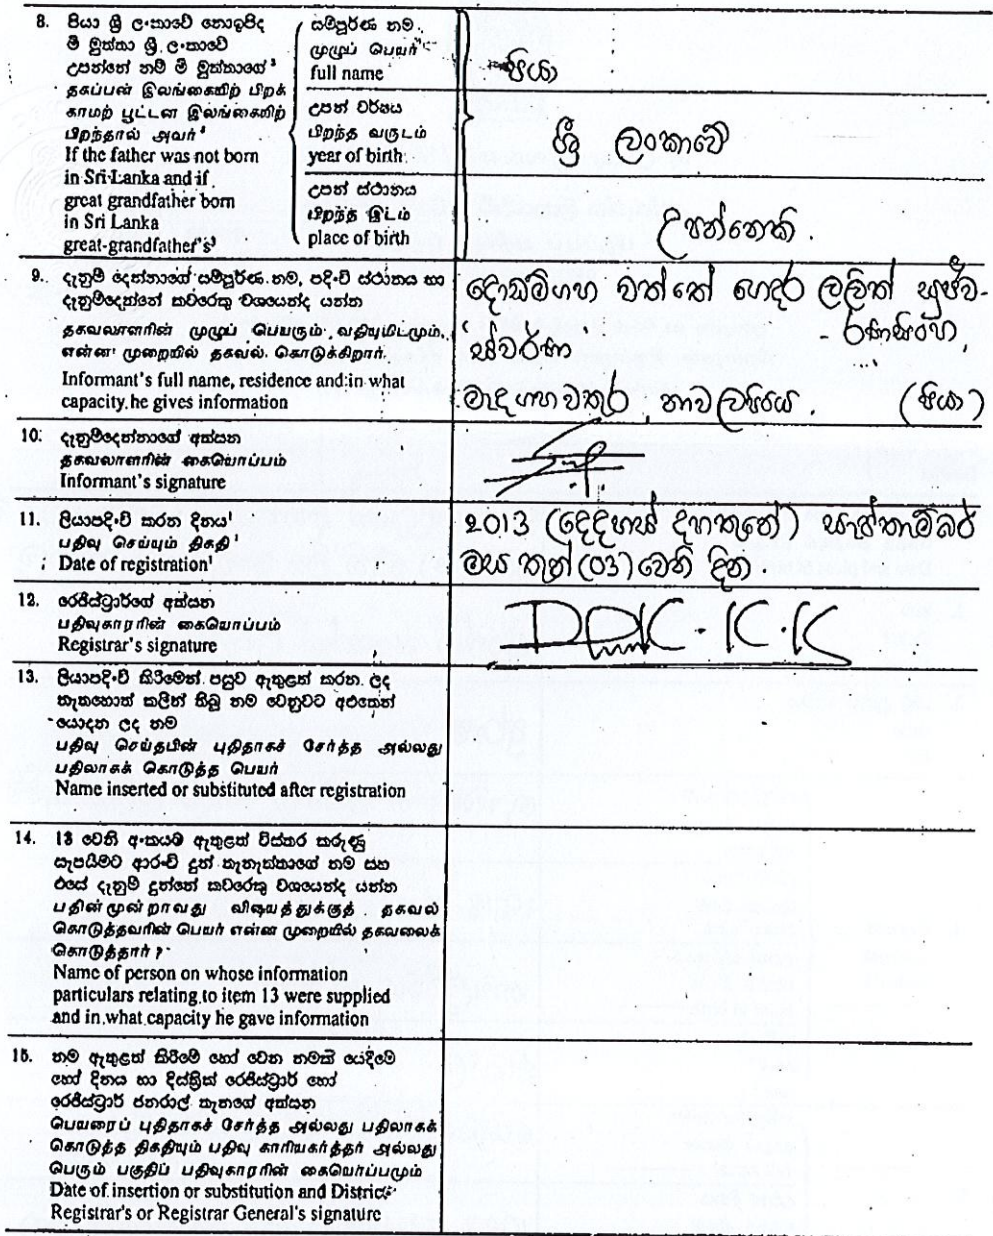 8. පියා ශ්‍රී ලංකාවේ නොඉපිද
මී මුත්තා ශ්‍රී ලංකාවේ
උපන්නේ නම් මී මුත්තාගේ³
தகப்பன் இலங்கையிற் பிறக்
காமற் பூட்டன இலங்கையிற்
பிறந்தால் அவர்³
If the father was not born
in Sri Lanka and if
great grandfather born
in Sri Lanka
great-grandfather's³
සම්පූර්ණ නම
முழுப் பெயர்
full name
පියා
උපන් වර්ෂය
பிறந்த வருடம்
year of birth
ශ්‍රී ලංකාවේ
උපන් ස්ථානය
பிறந்த இடம்
place of birth
උපන්නෙකි.
9. දැනුම් දෙන්නාගේ සම්පූර්ණ නම, පදිංචි ස්ථානය හා
දැනුම්දෙන්නේ කවරෙකු වශයෙන්ද යන්න
தகவலாளரின் முழுப் பெயரும் வதியுமிடமும்,
என்ன முறையில் தகவல் கொடுக்கிறார்.
Informant's full name, residence and in what
capacity he gives information
දොඩම්ගහ වත්තේ ගෙදර ලලිත් පුෂ්ප-
ස්වර්ණ රණසිංහ,
මැදගහවතුර, නාවලපිටිය. (පියා)
10. දැනුම්දෙන්නාගේ අත්සන
தகவலாளரின் கையொப்பம்
Informant's signature
11. ලියාපදිංචි කරන දිනය¹
பதிவு செய்யும் திகதி¹
Date of registration¹
2013 (දෙදහස් දහතුනේ) සැප්තාම්බර්
මස තුන් (03) වෙනි දින.
12. රෙජිස්ට්‍රාර්ගේ අත්සන
பதிவுகாரரின் கையொப்பம்
Registrar's signature
13. ලියාපදිංචි කිරීමෙන් පසුව ඇතුළත් කරන ලද
නැතහොත් කලින් තිබූ නම වෙනුවට අළුතෙන්
යොදන ලද නම
பதிவு செய்தபின் புதிதாகச் சேர்த்த அல்லது
பதிலாகக் கொடுத்த பெயர்
Name inserted or substituted after registration
14. 13 වෙනි අංකයට ඇතුළත් විස්තර කරුණු
සැපයීමට ආරංචි දුන් තැනැත්තාගේ නම සහ
එසේ දැනුම් දුන්නේ කවරෙකු වශයෙන්ද යන්න
பதின்மூன்றாவது விஷயத்துக்குத் தகவல்
கொடுத்தவரின் பெயர் என்ன முறையில் தகவலைக்
கொடுத்தார்?
Name of person on whose information
particulars relating to item 13 were supplied
and in what capacity he gave information
15. නම ඇතුළත් කිරීමේ හෝ වෙන නමක් යෙදීමේ
හෝ දිනය හා දිස්ත්‍රික් රෙජිස්ට්‍රාර් හෝ
රෙජිස්ට්‍රාර් ජනරාල් තැනගේ අත්සන
பெயரைப் புதிதாகச் சேர்த்த அல்லது பதிலாகக்
கொடுத்த திகதியும் பதிவு காரியகர்த்தர் அல்லது
பெரும் பகுதிப் பதிவுகாரரின் கையொப்பமும்
Date of insertion or substitution and District
Registrar's or Registrar General's signature